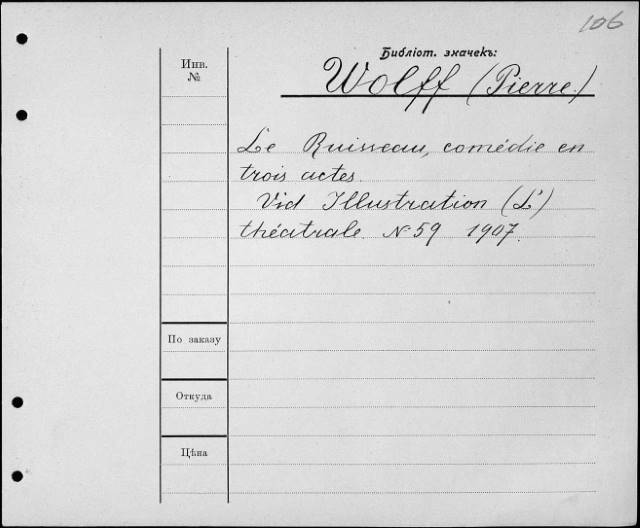 106
Библіот. значекъ:
Инв.
№
Wolff (Pierre.)
Le Ruisseau, comédie en
trois actes.
Vid Illustration (L')
théâtrale. N 59 1907.
По заказу
Откуда
Цѣна